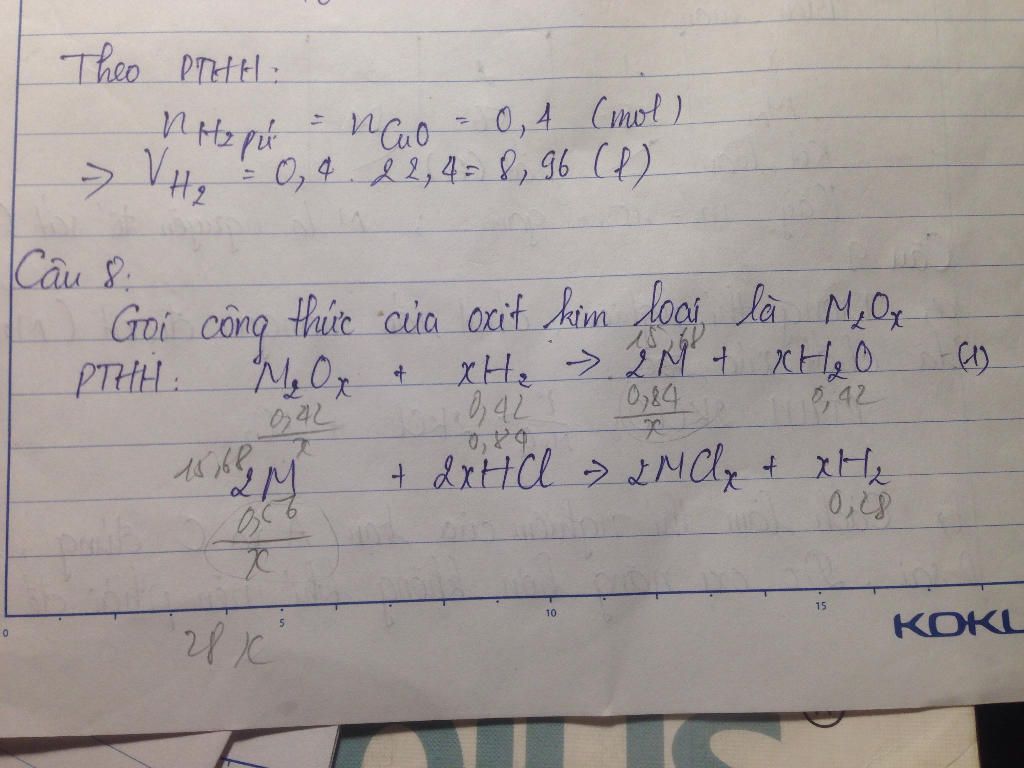 Theo PTHH:
n H2 pứ = n CuO = 0,4 (mol)
=> V H2 = 0,4 . 22,4 = 8,96 (l)
Câu 8:
Gọi công thức của oxit kim loại là M2Ox
15,68
PTHH: M2Ox + xH2 → 2M + xH2O (1)
0,42/x 0,42 0,84/x 0,42
0,84
15,68
2M + 2xHCl → 2MClx + xH2
0,56/x 0,28
0 5 10 15
KOKU
28x